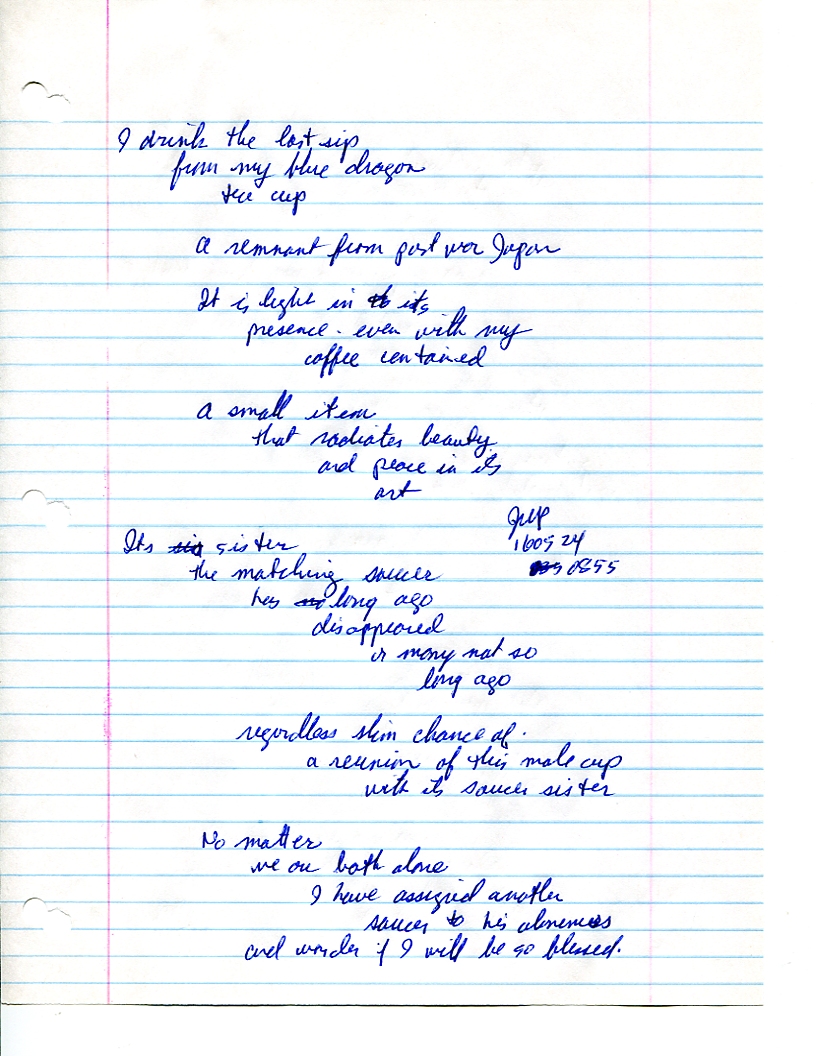 I drink the last sip
from my blue dragon
tea cup
A remnant from post war Japan
It is light in its
presence - even with my
coffee contained
A small item
that radiates beauty
and peace in its
art
JMP
160524
0855
Its sister
the matching saucer
has long ago
disappeared
or many not so
long ago
regardless slim chance of
a reunion of this male cup
with its saucer sister
No matter
we are both alone
I have assigned another
saucer to his aloneness
and wonder if I will be so blessed.